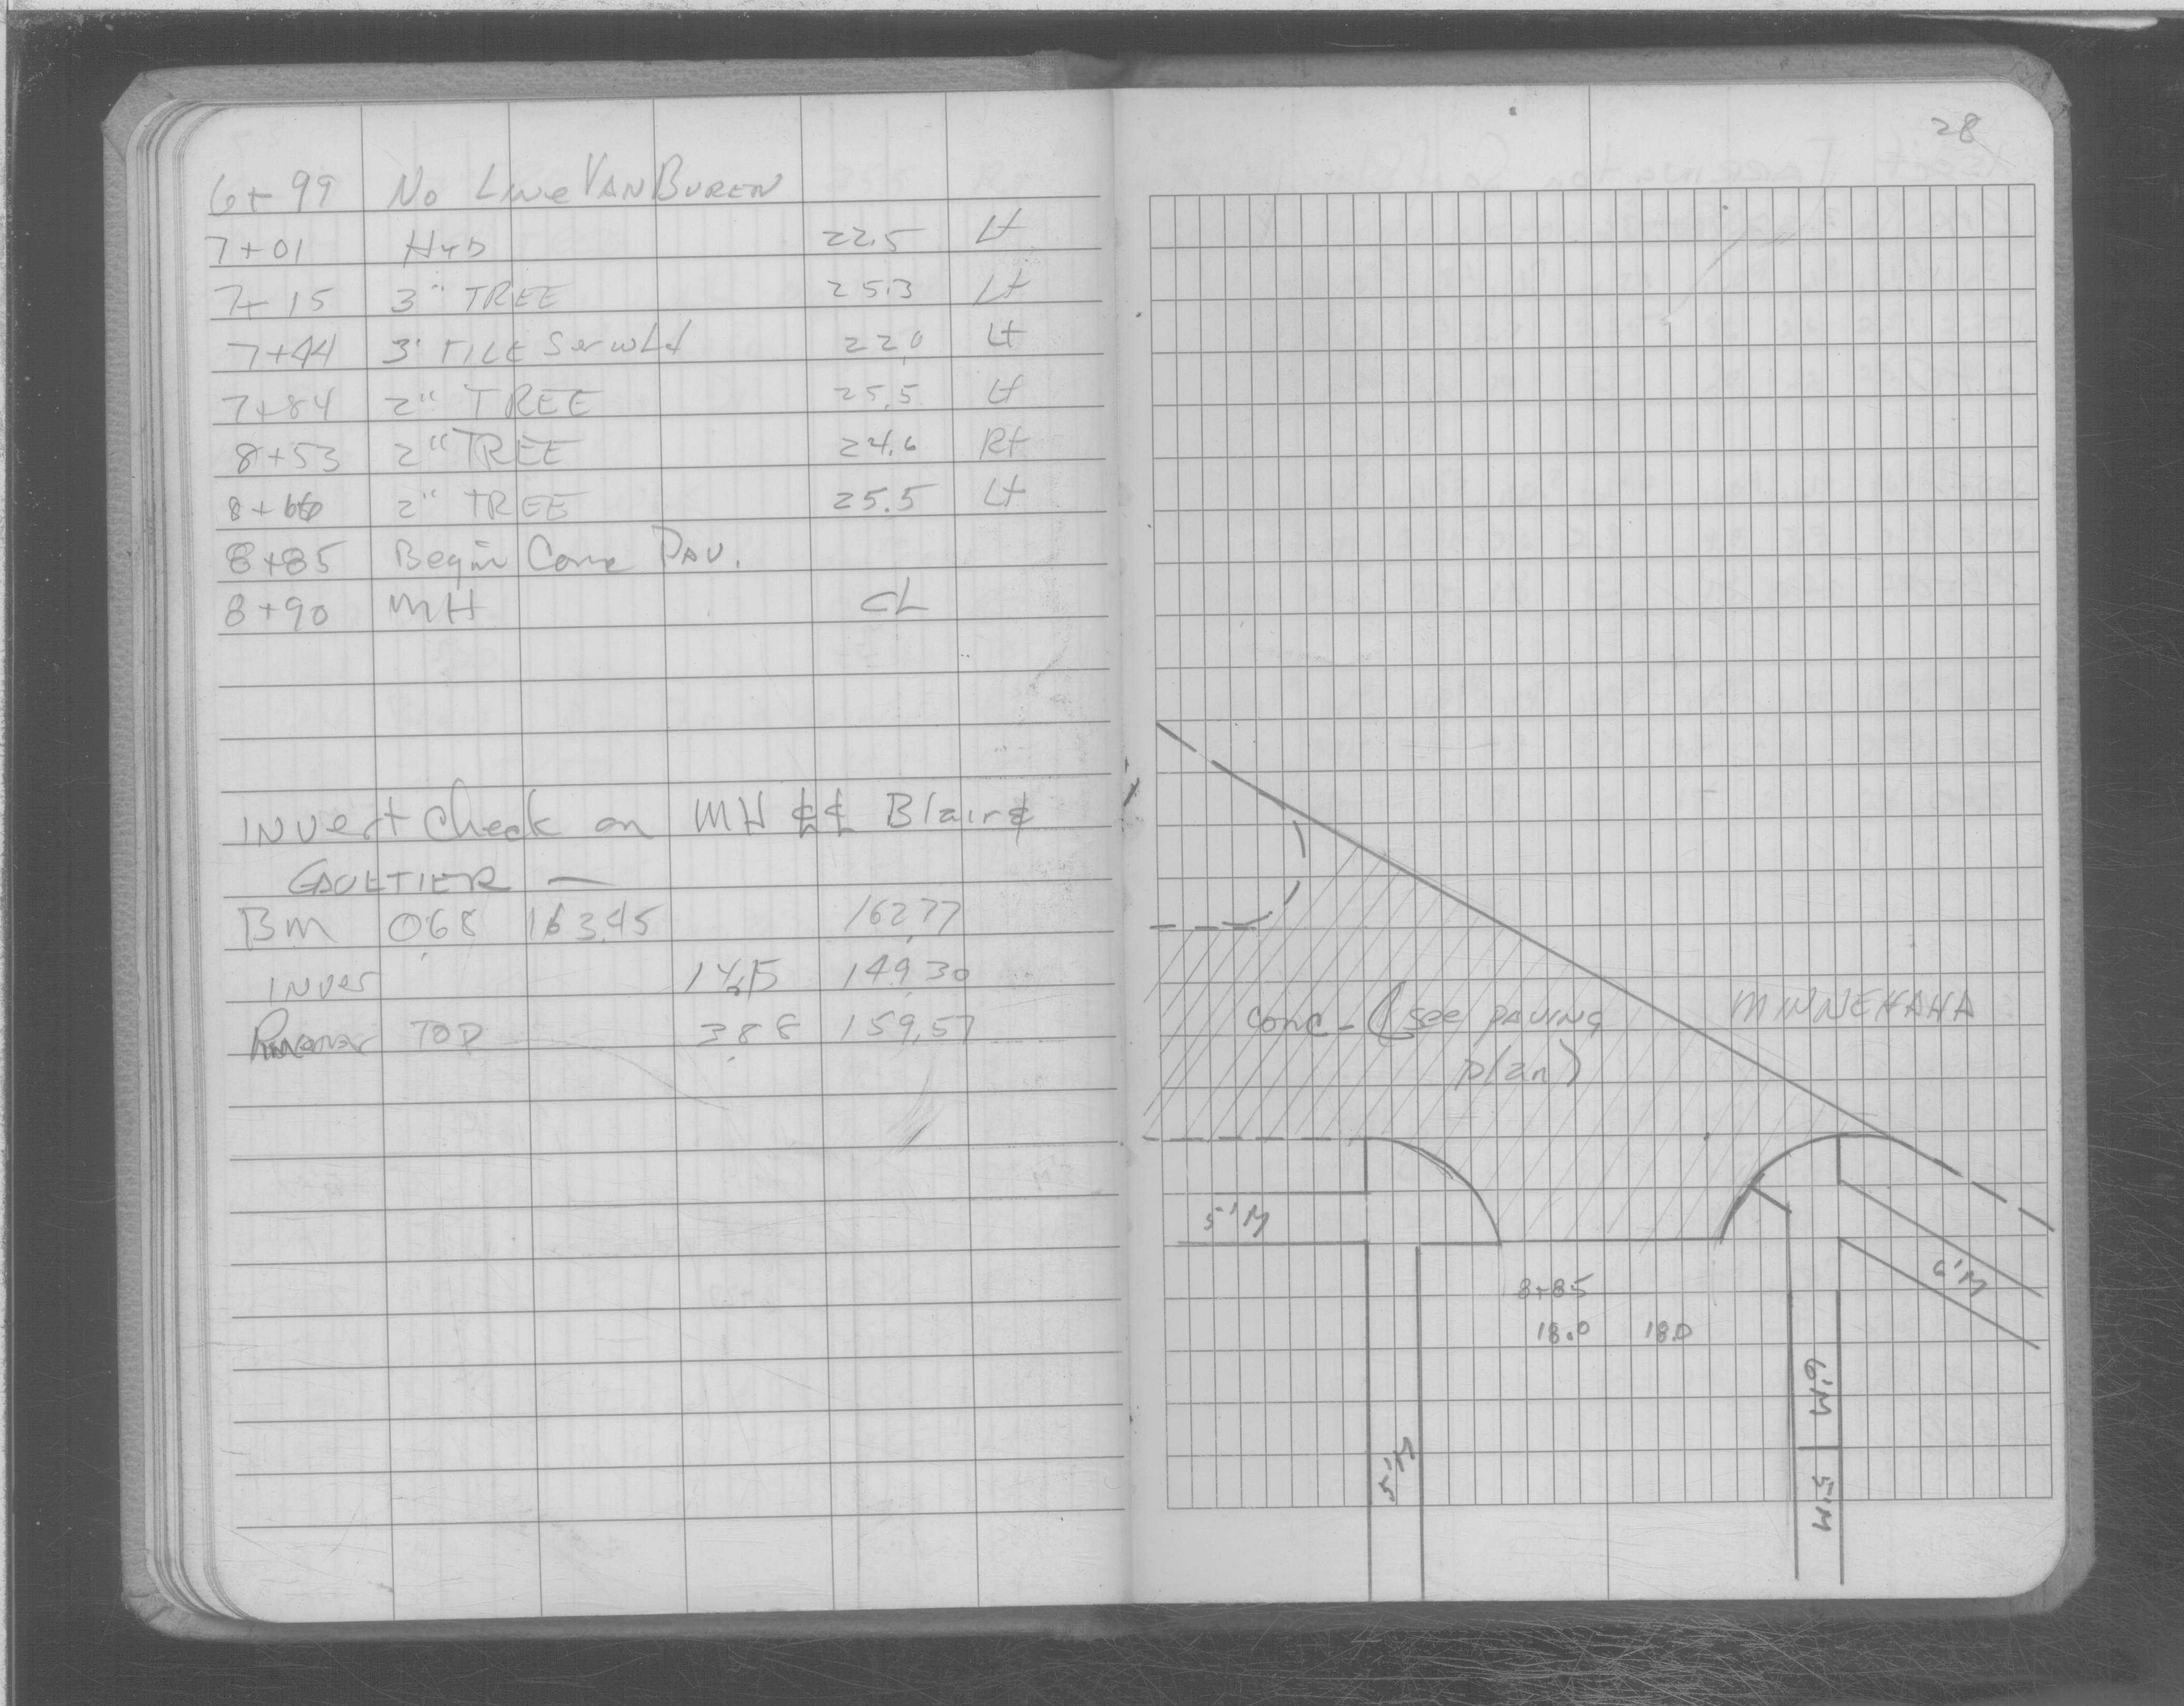 28
6+99 No Line VAN BUREN
7+01 Hyd 22.5 Lt
7+15 3" TREE 25.3 Lt
7+44 3' TILE Ser wLd 22.0 Lt
7+84 2" TREE 25.5 Lt
8+53 2" TREE 24.6 Rt
8+66 2" TREE 25.5 Lt
8+85 Begin Conc PAV.
8+90 MH CL
INVERT Check on MH ℄ ℄ Blair &
GAULTIER —
BM 0.68 163.45 162.77
INVER 14.15 149.30
TOP 3.88 159.57
MINNEHAHA
conc - (see PAVING
plan)
5'M
6'M
8+85
18.0 18.0
6'M
5'M
5'M